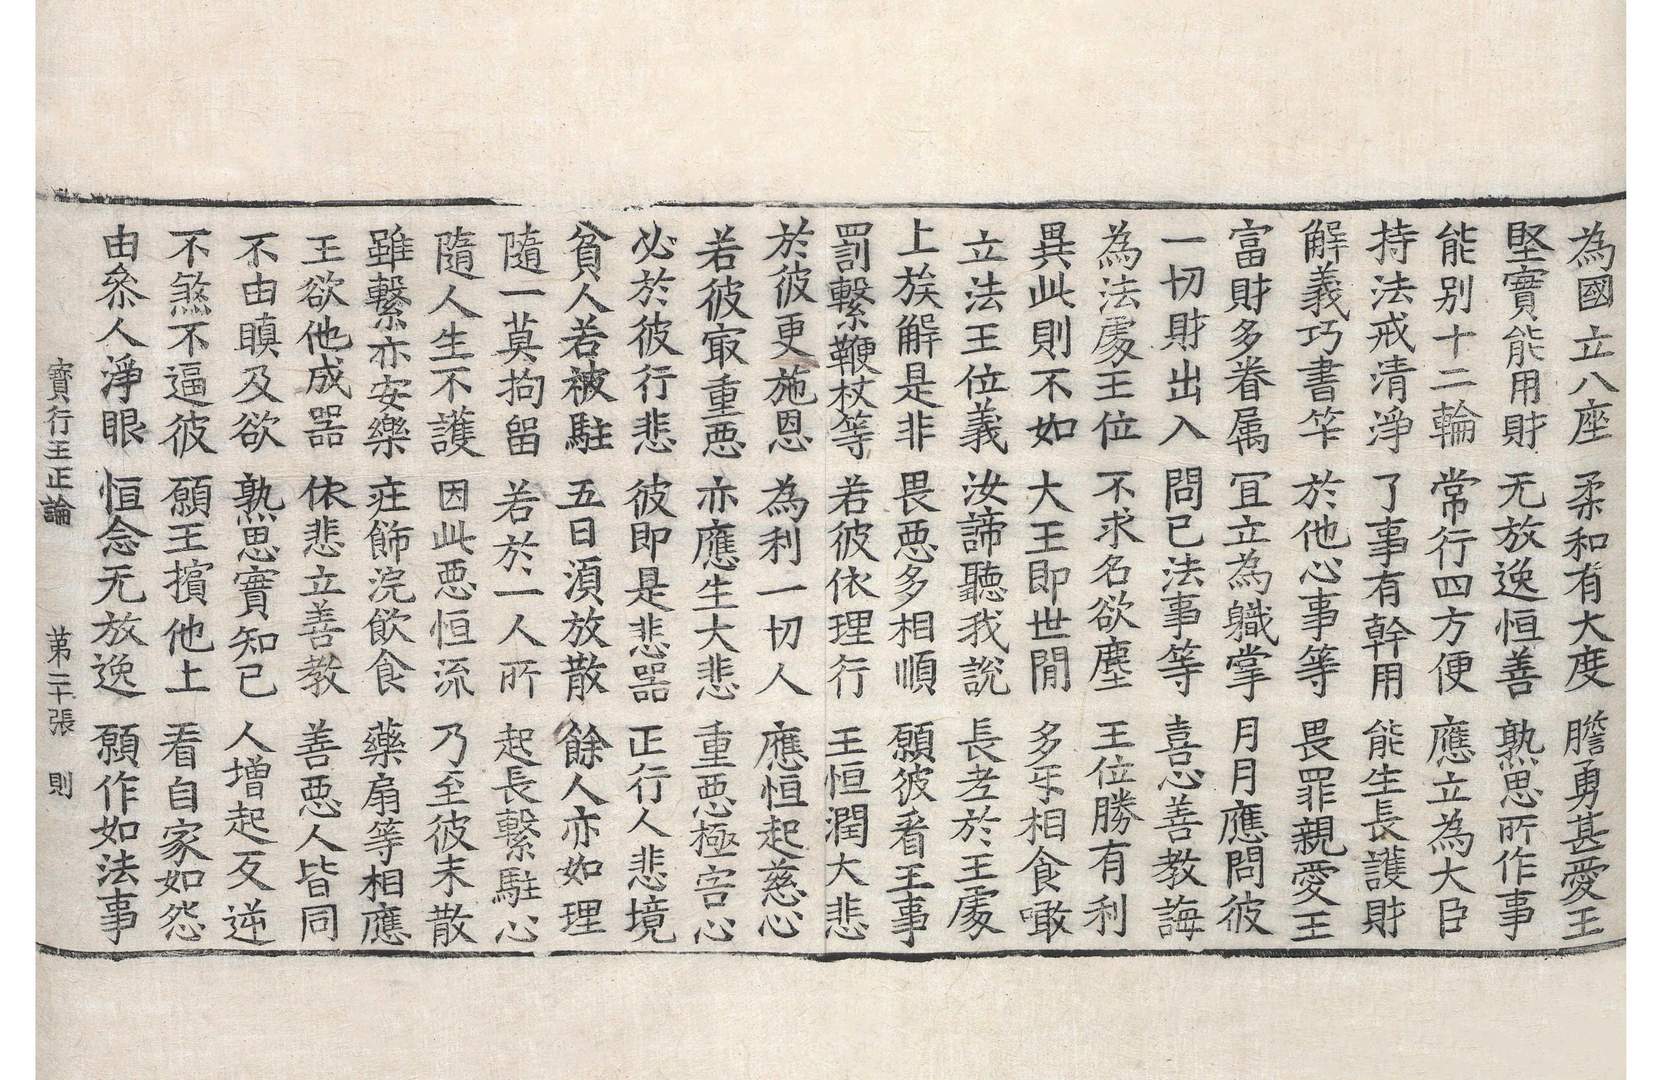 為國立八座 柔和有大度 膽勇甚愛王
堅實能用財 无放逸恒善 熟思所作事
能别十二輪 常行四方便 應立為大臣
持法戒清淨 了事有幹用 能生長護財
解義巧書筭 於他心事等 畏罪親愛王
富財多眷属 冝立為軄掌 月月應問彼
一切財出入 問已法事等 喜心善教誨
為法處王位 不求名欲塵 王位勝有利
異此則不如 大王即世閒 多㸦相食噉
立法王位義 汝諦聽我說 長老於王處
上族解是非 畏惡多相順 願彼看王事
罰繫鞭杖等 若彼依理行 王恒潤大悲
於彼更施恩 為利一切人 應恒起慈心
若彼㝡重惡 亦應生大悲 重惡極害心
必於彼行悲 彼即是悲器 正行人悲境
貧人若被駐 五日湏放散 餘人亦如理
隨一莫拘留 若於一人所 起長繫駐心
隨人生不護 因此惡恒流 乃至彼未散
雖繫亦安樂 莊飾浣飲食 藥扇等相應
王欲他成器 依悲立善教 善惡人皆同
不由瞋及欲 熟思實知已 人增起反逆
不煞不逼彼 願王擯他土 看自家如怨
由叅人淨眼 恒念无放逸 願作如法事
寶行王正論 苐二十張 則